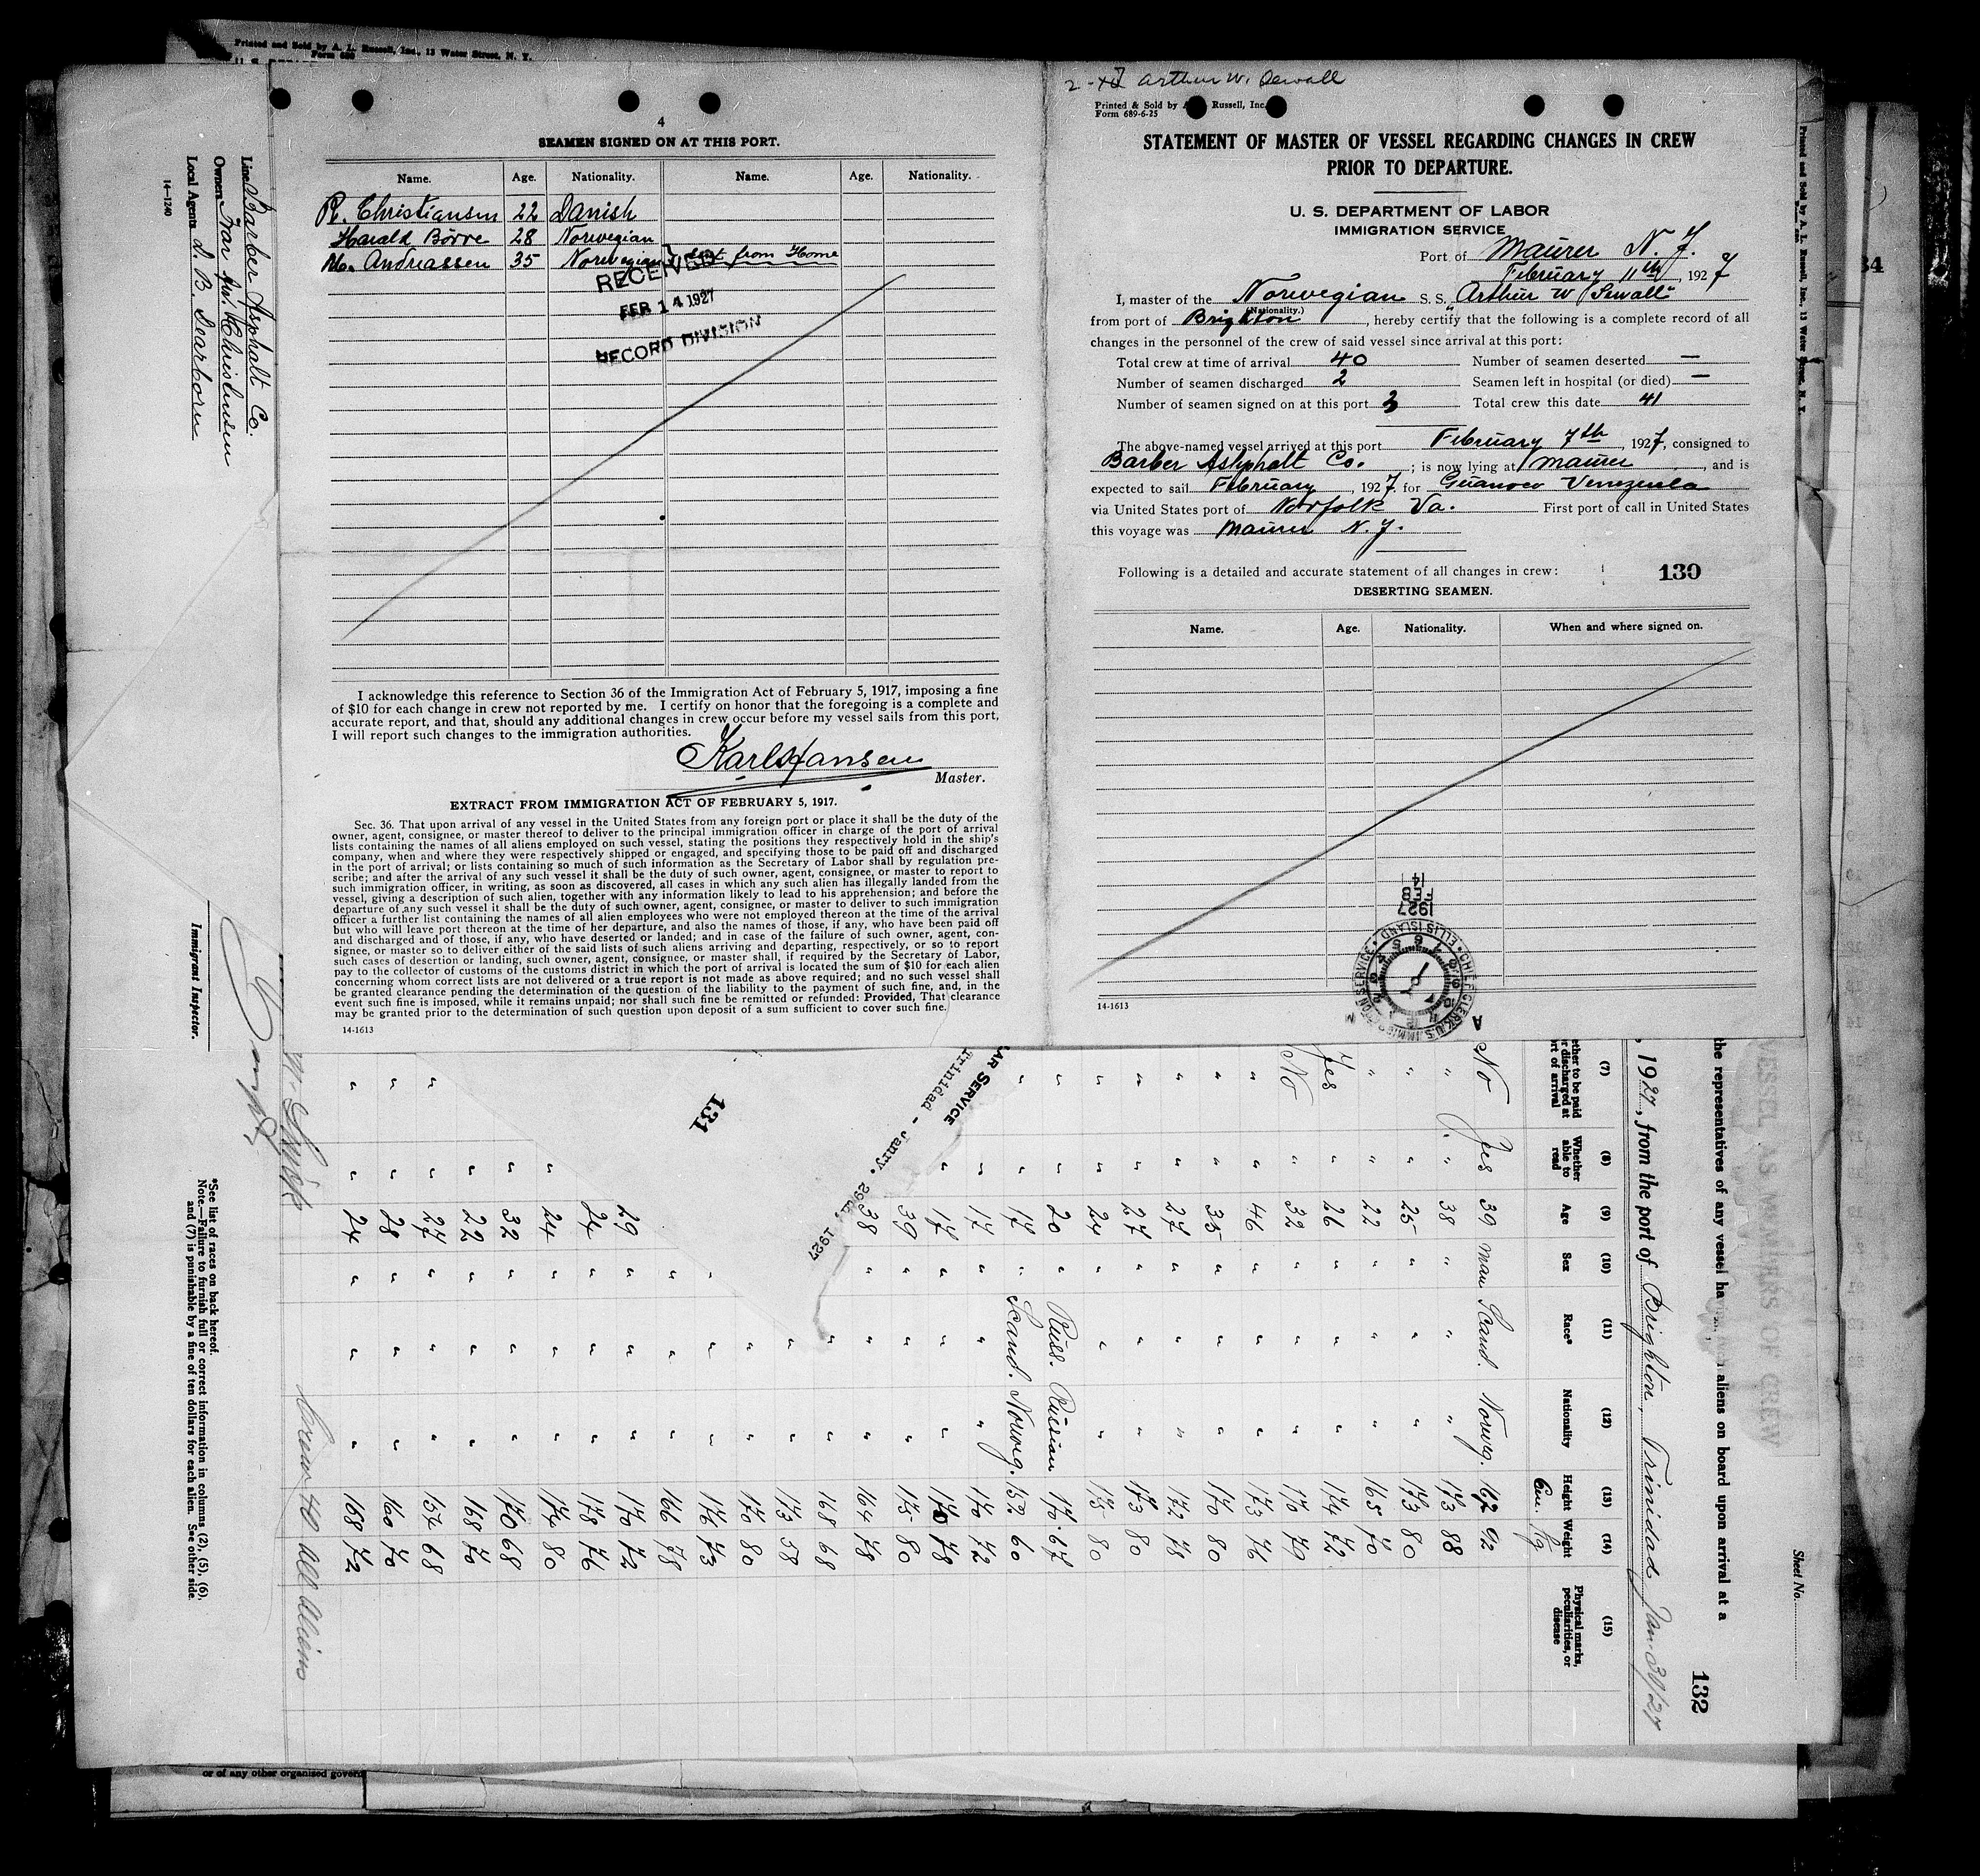 Printed and Sold by A. L. Russell, Inc., 13 Water Street, N. Y.
Form 689
4
SEAMEN SIGNED ON AT THIS PORT.
Name. Age. Nationality. Name. Age. Nationality.
R. Christiansen 22 Danish
Harald Börve 28 Norwegian
M. Andreassen 35 Norwegian sent from Home
RECEIVED
FEB 14 1927
RECORD DIVISION
I acknowledge this reference to Section 36 of the Immigration Act of February 5, 1917, imposing a fine
of $10 for each change in crew not reported by me. I certify on honor that the foregoing is a complete and
accurate report, and that, should any additional changes in crew occur before my vessel sails from this port,
I will report such changes to the immigration authorities.
Karl Hansen
Master.
EXTRACT FROM IMMIGRATION ACT OF FEBRUARY 5, 1917.
Sec. 36. That upon arrival of any vessel in the United States from any foreign port or place it shall be the duty of the
owner, agent, consignee, or master thereof to deliver to the principal immigration officer in charge of the port of arrival
lists containing the names of all aliens employed on such vessel, stating the positions they respectively hold in the ship's
company, when and where they were respectively shipped or engaged, and specifying those to be paid off and discharged
in the port of arrival; or lists containing so much of such information as the Secretary of Labor shall by regulation pre-
scribe; and after the arrival of any such vessel it shall be the duty of such owner, agent, consignee, or master to report to
such immigration officer, in writing, as soon as discovered, all cases in which any such alien has illegally landed from the
vessel, giving a description of such alien, together with any information likely to lead to his apprehension; and before the
departure of any such vessel it shall be the duty of such owner, agent, consignee, or master to deliver to such immigration
officer a further list containing the names of all alien employees who were not employed thereon at the time of the arrival
but who will leave port thereon at the time of her departure, and also the names of those, if any, who have been paid off
and discharged and of those, if any, who have deserted or landed; and in case of the failure of such owner, agent, con-
signee, or master so to deliver either of the said lists of such aliens arriving and departing, respectively, or so to report
such cases of desertion or landing, such owner, agent, consignee, or master shall, if required by the Secretary of Labor,
pay to the collector of customs of the customs district in which the port of arrival is located the sum of $10 for each alien
concerning whom correct lists are not delivered or a true report is not made as above required; and no such vessel shall
be granted clearance pending the determination of the question of the liability to the payment of such fine, and, in the
event such fine is imposed, while it remains unpaid; nor shall such fine be remitted or refunded: Provided, That clearance
may be granted prior to the determination of such question upon deposit of a sum sufficient to cover such fine.
14-1613
Arthur W. Sewall
Printed & Sold by A. Russell, Inc.
Form 689-6-25
STATEMENT OF MASTER OF VESSEL REGARDING CHANGES IN CREW
PRIOR TO DEPARTURE.
U. S. DEPARTMENT OF LABOR
IMMIGRATION SERVICE
Port of Maurer N. J.
February 11th, 1927
I, master of the Norwegian S. S. "Arthur W Sewall"
(Nationality.)
from port of Brighton, hereby certify that the following is a complete record of all
changes in the personnel of the crew of said vessel since arrival at this port:
Total crew at time of arrival 40 Number of seamen deserted —
Number of seamen discharged 2 Seamen left in hospital (or died) —
Number of seamen signed on at this port 3 Total crew this date 41
The above-named vessel arrived at this port February 7th, 1927, consigned to
Barber Ashphalt Co. ; is now lying at Maurer, and is
expected to sail February, 1927. for Guanoco Venezuela
via United States port of Norfolk Va. First port of call in United States
this voyage was Maurer N. J.
Following is a detailed and accurate statement of all changes in crew: 130
DESERTING SEAMEN.
Name. Age. Nationality. When and where signed on.
14-1613
1927
FEB
14
CHIEF CLERK U.S. IMMIGRATION SERVICE
ELLIS ISLAND
Line Barber Asphalt Co.
Owners Ivar An. Christensen
Local Agents D. B. Dearborn
14-1240
Immigrant Inspector.
*See list of races on back hereof.
Note.—Failure to furnish full or correct information in columns (2), (5), (6),
and (7) is punishable by a fine of ten dollars for each alien. See other side.
Crew 40 all aliens
Sheet No.
132
the representatives of any vessel having aliens on board upon arrival at a
VESSEL AS MEMBERS OF CREW
, 1927, from the port of Brighton, Trinidad Jan. 30/27
(7) (8) (9) (10) (11) (12) (13) (14) (15)
Whether able to read
Age
Sex
Race*
Nationality
Height
Weight
Physical marks, peculiarities, or disease
Cm. Kg
No Yes 39 man Scand. Norweg. 167 92
" " 38 " " " 173 88
" " 25 " " " 173 80
" " 22 " " " 165 70
Yes " 26 " " " 174 72
No " 32 " " " 170 79
" " 46 " " " 173 76
" " 35 " " " 170 80
" " 27 " " " 172 78
" " 27 " " " 173 80
" " 24 " " " 175 80
" " 20 " Russ. Russian 170 67
" " 17 " Scand. Norweg. 152 60
" 17 " " " 170 72
" 17 " " " 170 78
39 " " " 175 80
38 " " " 164 78
" " 168 68
" " 173 58
" " 170 80
" " " 176 73
" " " 166 78
29 " " " 170 72
24 " " " 178 76
" 24 " " " 174 80
" 32 " " " 170 68
" 22 " " " 168 70
" " 27 " " " 154 68
" " 28 " " " 160 70
" " 24 " " " 168 72
LAR SERVICE
Trinidad - Janry. 29th, 1927
131
or of any other organised govern